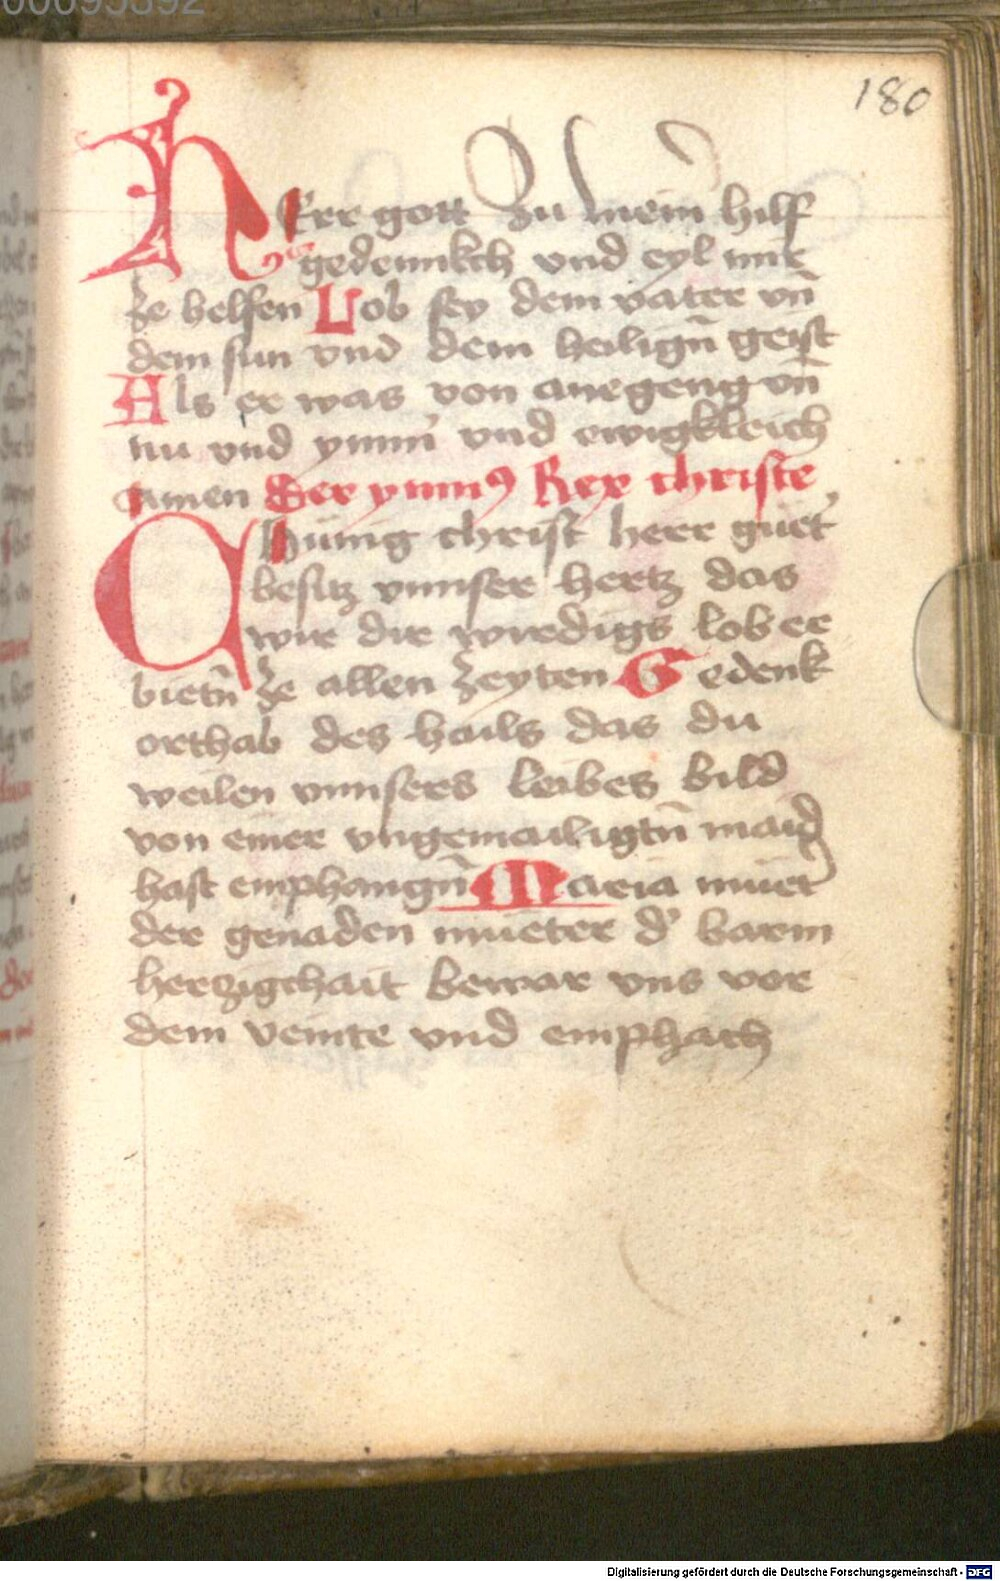 00095592
180
HErr gott zu meim hilf
gedennkch vnd eyl mir
ze helfen Lob sey dem vater vn̄
dem sun vnd dem heiligñ geist
Als er was von anegeng vn̄
nu vnd ymm̄ vnd ewigkleich
Amen Der ymn9 Rex christe
Chünig christ herr güet'
besitz vnnser hertz das
wir dir wirdigs lob er
bietñ ze allen zeyten Gedenk
orthab des hails das du
weilen vnnsers leibes bild
von einer vngemailigtñ maid
hast emphangñ Maria müet'
der genaden müeter d' barm
herczigchait bewar vns vor
dem veinte vnd emphach
Digitalisierung gefördert durch die Deutsche Forschungsgemeinschaft - DFG